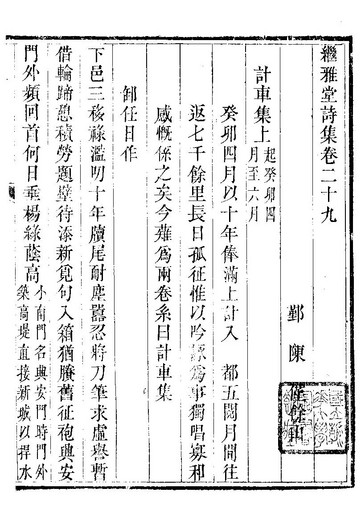 繼雅堂詩集卷二十九
鄞 陳
計車集上 起癸卯四月至六月
癸卯四月以十年俸滿上計入 都五閱月間往
返七千餘里長日孤征惟以吟詠爲事獨唱寡和
感慨係之矣今薙爲兩卷系曰計車集
卸任日作
下邑三移祿濫叨十年牘尾耐塵囂忍將刀筆求虛譽暫
借輪蹄憩積勞題壁待添新覓句入箱猶賸舊征袍興安
門外頻回首何日垂楊綠蔭高 小南門名興安門時門外築高堤直接新城以捍水